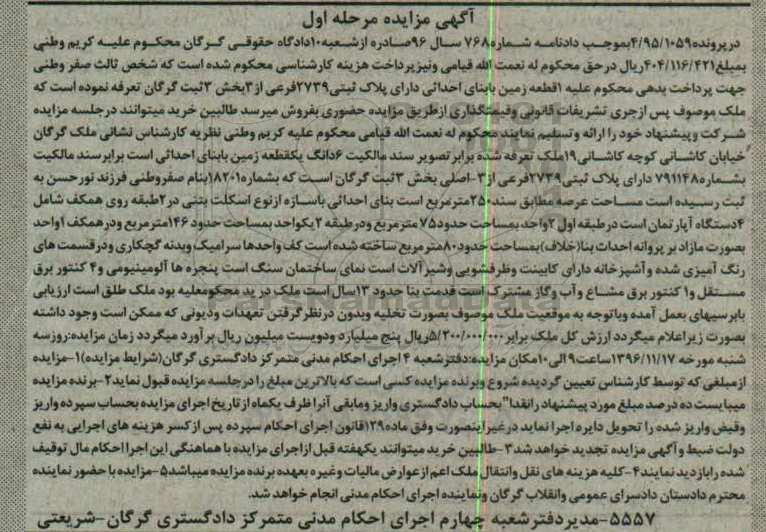 آگهی مزایده مرحله اول
درپرونده۴/۹۵/۱۰۵۹بموجب دادنامه شماره۷۶۸ سال ۹۶صادره ازشعبه۱۰دادگاه حقوقی گرگان محکوم علیه کریم وطنی
بمبلغ۴۰۴/۱۱۶/۴۲۱ریال درحق محکوم له نعمت الله قیامی ونیزپرداخت هزینه کارشناسی محکوم شده است که شخص ثالث صفر وطنی
جهت پرداخت بدهی محکوم علیه ۱قطعه زمین بابنای احداثی دارای پلاک ثبتی۲۷۳۹فرعی از۳بخش ۳ثبت گرگان تعرفه نموده است که
ملک موصوف پس ازجری تشریفات قانونی وقیمتگذاری ازطریق مزایده حضوری بفروش میرسد طالبین خرید میتوانند درجلسه مزایده
شرکت وپیشنهاد خود را ارائه وتسلیم نمایند محکوم له نعمت الله قیامی محکوم علیه کریم وطنی نظریه کارشناس نشانی ملک گرگان
خیابان کاشانی کوچه کاشانی۱۹ملک تعرفه شده برابر تصویر سند مالکیت ۶دانگ یکقطعه زمین بابنای احداثی است برابرسند مالکیت
بشماره۷۹۱۱۴۸ دارای پلاک ثبتی۲۷۳۹فرعی از۳-اصلی بخش ۳ثبت گرگان است که بشماره۱۸۲۰۱بنام صفروطنی فرزند نورحسن به
ثبت رسیده است مساحت عرصه مطابق سند۲۵۰مترمربع است بنای احداثی باسازه ازنوع اسکلت بتنی در۲طبقه روی همکف شامل
۴دستگاه آپارتمان است درطبقه اول ۲واحد بمساحت حدود۷۵ مترمربع ودرطبقه ۲یکواحد بمساحت حدود ۱۴۶مترمربع ودرهمکف ۱واحد
بصورت مازاد بر پروانه احداث بنا(خلاف)بمساحت حدود۸۰مترمربع ساخته شده است کف واحدها سرامیک وبدنه گچکاری ودرقسمت های
رنگ آمیزی شده وآشپزخانه دارای کابینت وظرفشویی وشیرآلات است نمای ساختمان سنگ است پنجره ها آلومینیومی و۴ کنتور برق
مستقل و۱ کنتور برق مشاع وآب وگاز مشترک است قدمت بنا حدود ۱۳سال است ملک در ید محکوم‌علیه بود ملک طلق است ارزیابی
بابرسیهای بعمل آمده وباتوجه به موقعیت ملک موصوف بصورت تخلیه وبدون درنظرگرفتن تعهدات ودیونی که ممکن است وجود داشته
بصورت زیراعلام میگردد ارزش کل ملک برابر۵/۲۰۰/۰۰۰/۰۰۰ریال پنج میلیارد ودویست میلیون ریال برآورد میگردد زمان مزایده:روزسه
شنبه مورخه ۱۳۹۶/۱۱/۱۷ساعت۹ الی۱۰مکان مزایده:دفترشعبه ۴ اجرای احکام مدنی متمرکز دادگستری گرگان(شرایط مزایده)۱-مزایده
ازمبلغی که توسط کارشناس تعیین گردیده شروع وبرنده مزایده کسی است که بالاترین مبلغ را درجلسه مزایده قبول نماید۲-برنده مزایده
میبایست ده درصد مبلغ مورد پیشنهاد رانقدا"بحساب دادگستری واریز ومابقی آنرا ظرف یکماه ازتاریخ اجرای مزایده بحساب سپرده واریز
وقبض واریز شده را تحویل دایره اجرا نماید درغیراینصورت وفق ماده۱۲۹قانون اجرای احکام سپرده پس ازکسر هزینه های اجرایی به نفع
دولت ضبط وآگهی مزایده تجدید خواهد شد۳-طالبین خرید میتوانند یکهفته قبل ازاجرای مزایده با هماهنگی این اجرا احکام مال توقیف
شده رابازدید نمایند۴-کلیه هزینه های نقل وانتقال ملک اعم ازعوارض مالیات وغیره بعهده برنده مزایده میباشد۵-مزایده با حضور نماینده
محترم دادستان دادسرای عمومی وانقلاب گرگان ونماینده اجرای احکام مدنی انجام خواهد شد.
۵۵۵۷-مدیردفترشعبه چهارم اجرای احکام مدنی متمرکز دادگستری گرگان-شریعتی